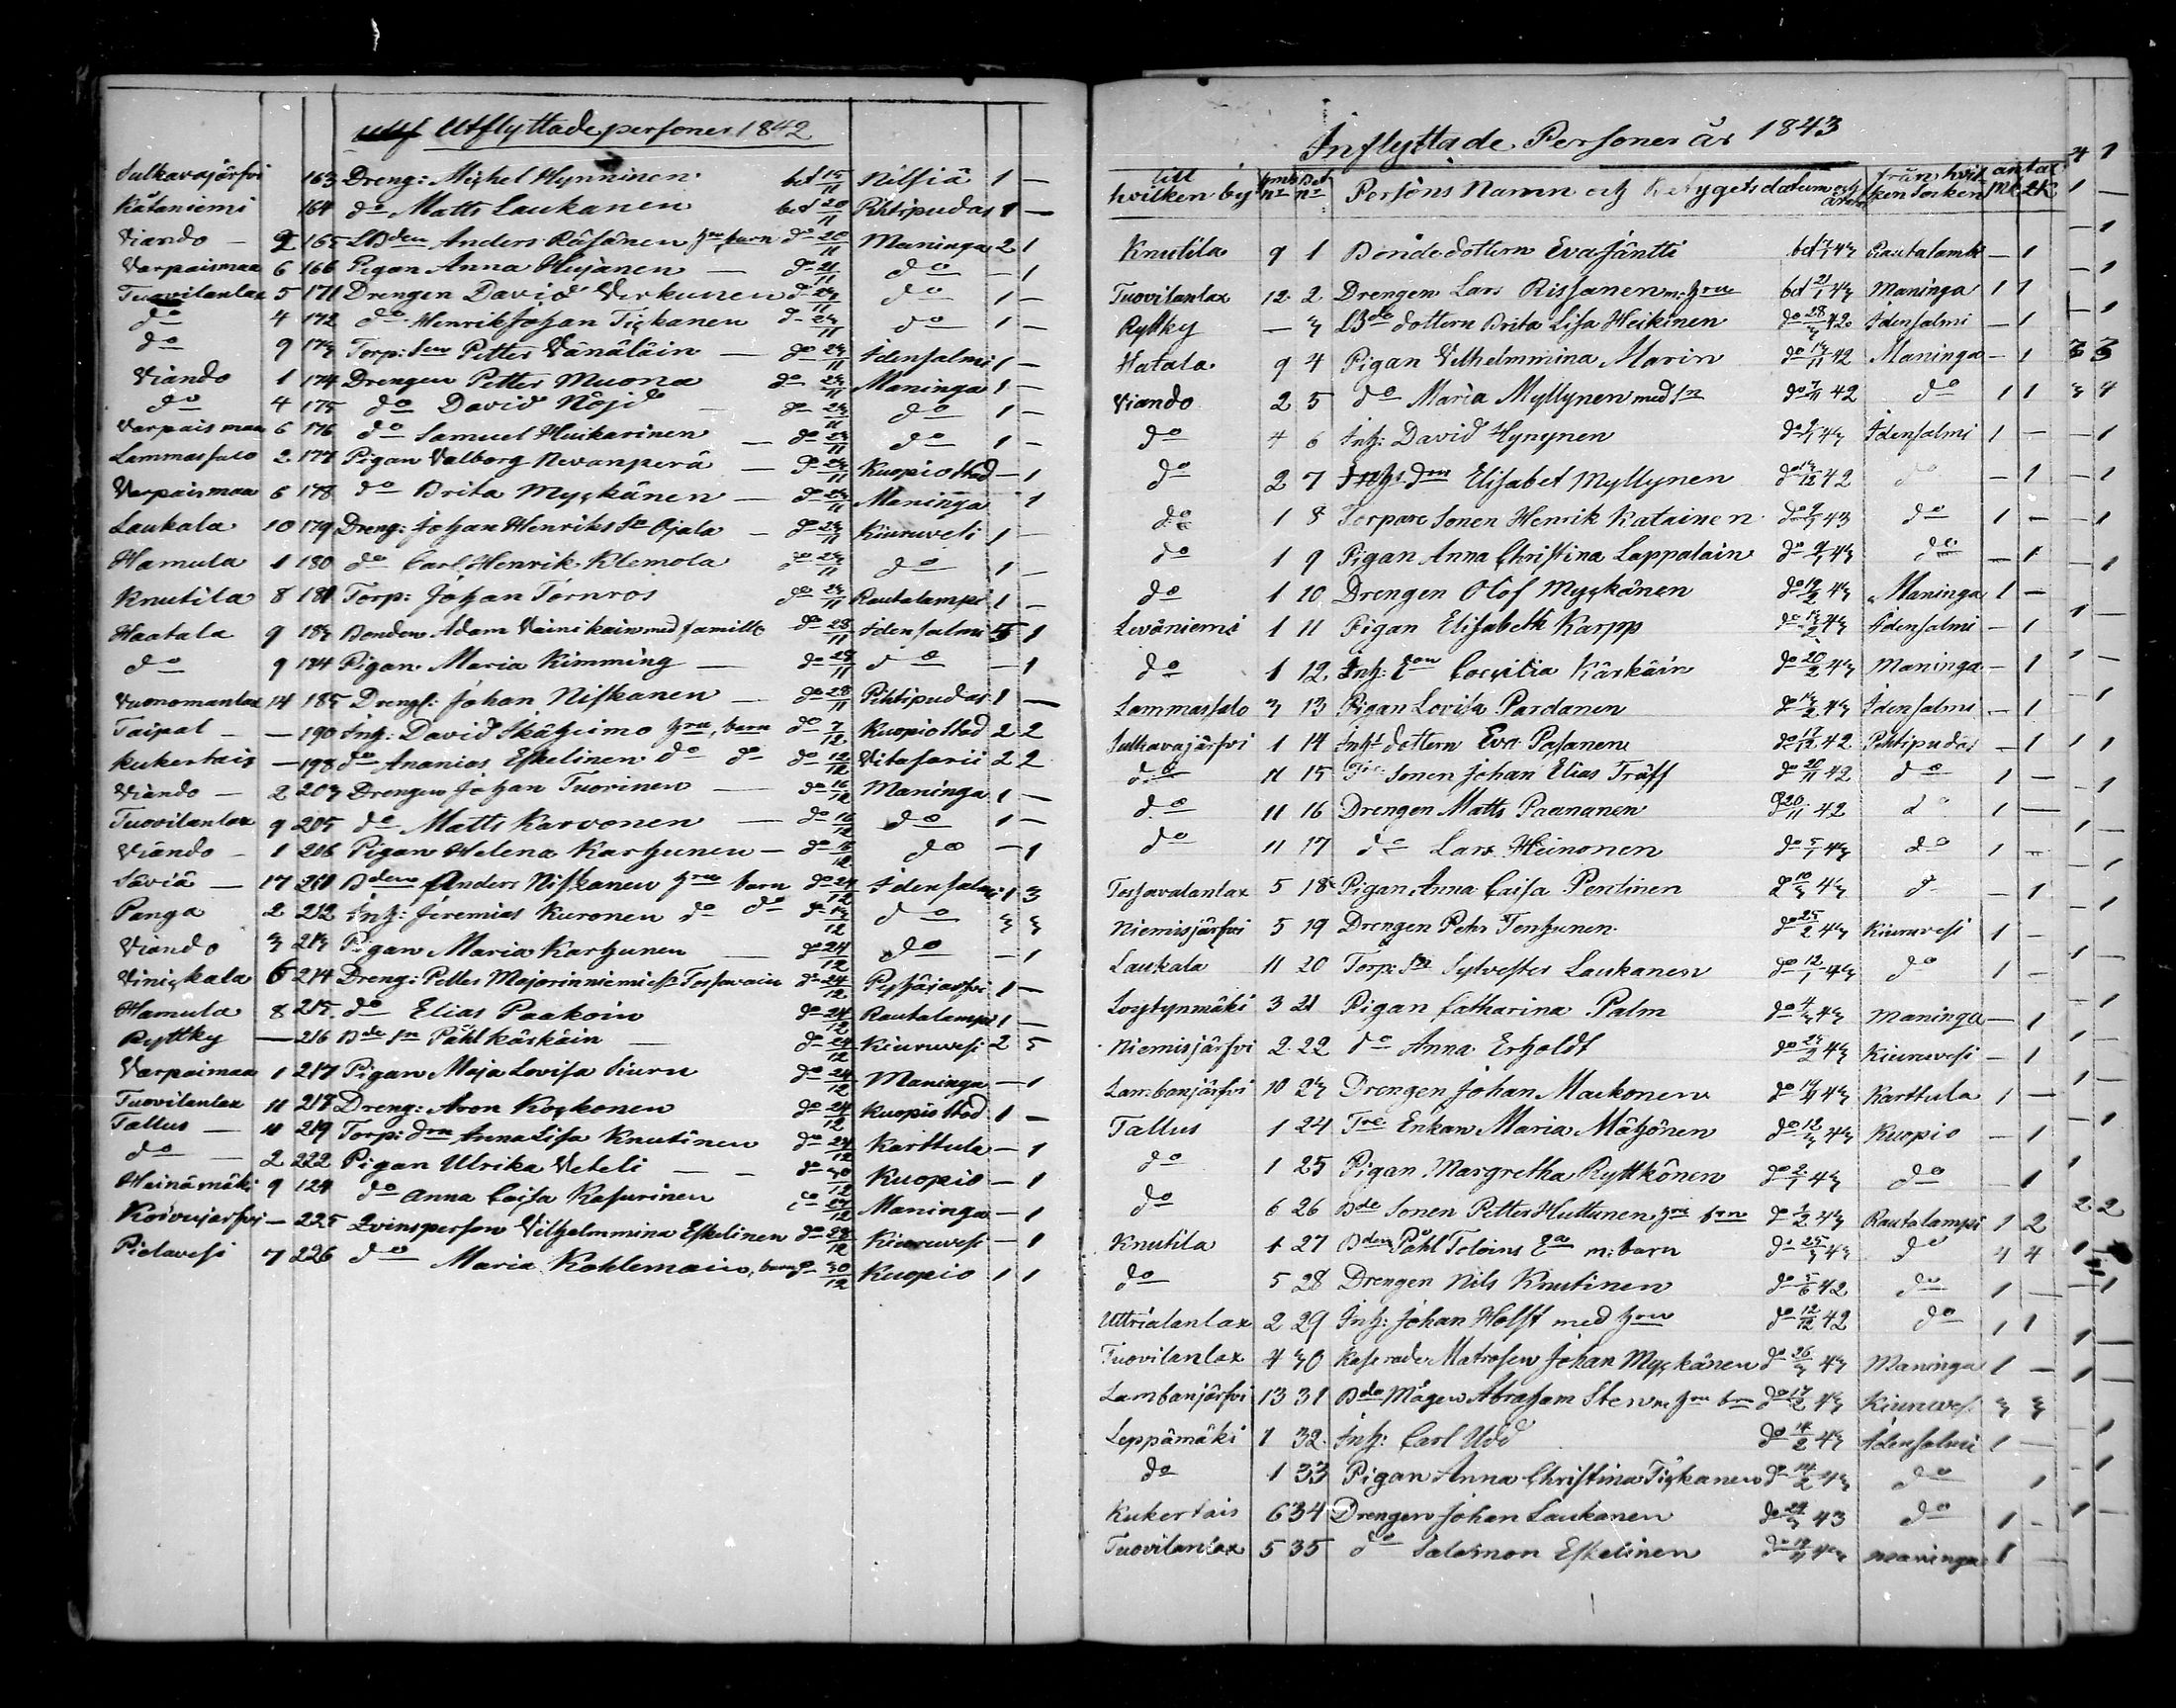 Utflyttade personer 1842
Sulkavajärfvi 163 Dreng: Michel Hynninen bet 15/11 Nilsiä 1 —
Kätäniemi 164 do Matts Laukanen bet 20/11 Pihtipudas 1 —
Viando — 2 165 LBden Anders Räsänen hru barn do 20/11 Maninga 2 1
Varpaismaa 6 166 Pigan Anna Hujanen — do 21/11 do — 1
Tuovilanlax 5 171 Drengen David Verkunen do 23/11 do 1 —
do 4 172 do Henrik Johan Tickanen do 23/11 do 1 —
do 9 173 Torp: Son Petter Vänäläin — do 23/11 Idensalmi 1 —
Viando 1 174 Drengen Petter Muona do 23/11 Maninga 1 —
do 4 175 do David Nöjd — do 23/11 do 1 —
Varpaismaa 6 176 do Samuel Huikarinen — do 23/11 do 1 —
Lammassalo 2 177 Pigan Valborg Nevanperä — do 23/11 Kuopio stad — 1
Varpaismaa 6 178 do Brita Myckänen — do 23/11 Maninga 1
Laukala 10 179 Dreng: Johan Henriks Sn Ojala — do 23/11 Kiuruvesi 1 —
Hamula 1 180 do Carl Henrik Klemola do 23/11 do 1 —
Knutila 8 181 Torp: Johan Törnros do 23/11 Rautalampi 1 —
Haatala 9 183 Bonden Adam Vainikain med famille do 28/11 Idensalmi 5 1
do 9 184 Pigan Maria Kimming — do 28/11 do — 1
Vuonomanlax 14 185 Drengs: Johan Niskanen — do 28/11 Pihtipudas 1 —
Taipal — — 190 Inh: David Skähimo hru, barn do 7/12 Kuopio stad 2 2
Kukertais — 198 do Ananias Eskelinen do do do 12/12 Vitasarii 2 2
Viando — 2 203 Drengen Johan Tuorinen — do 16/12 Maninga 1 —
Tuovilanlax 9 205 do Matts Karvonen — do 16/12 do 1 —
Viando — 1 206 Pigan Helena Karhunen — do 16/12 do — 1
Säviä — 17 211 Bden Anders Niskanen hru barn do 24/12 Idensalmi 1 3
Panga 2 212 Inh: Jeremias Kuronen do do do 13/12 do 3 3
Viando 3 213 Pigan Maria Karhunen — do 24/12 do — 1
Vinickala 6 214 Dreng: Petter Majorinniemi Tossavain do 24/12 Pyhäjärfvi 1 —
Hamula 8 215 do Elias Paakoin do 24/12 Rautalampi 1 —
Ryttky — 216 Bde sn Påhl Kärkäin — do 24/12 Kiuruvesi 2 5
Varpaimaa 1 217 Pigan Maja Lovisa Siuru do 24/12 Maninga — 1
Tuovilanlax 11 218 Dreng: Aron Kockonen do 24/12 Kuopio stad 1 —
Tallus — 11 219 Torp: dru Anna Lisa Knutinen do 24/12 Karttula — 1
do — 2 222 Pigan Ulrika Veteli — — do 30/12 Kuopio — 1
Heinämäki 9 124 do Anna Caisa Kasurinen do Maninga — 1
Koivujärfvi — 225 Qvinsperson Vilhelmmina Eskelinen do 28/12 Kiuruvesi — 1
Pielavesi 7 226 do Maria Kohlemain, barn do 30/12 Kuopio 1 1
Inflyttade Personer år 1843
till hvilken by Persons Namn och betygets datum och årtal från hvilken Socken antal MK QK
Knutila 9 1 Bondedottern Eva Jäntti bet 43 Rautalambi — 1
Tuovilanlax 12 2 Drengen Lars Rissanen m: hru bet 21/1 43 Maninga 1 1
Ryttky — 3 LBde dottern Brita Lisa Heikinen do 28/3 42 Idensalmi — 1
Hatala 9 4 Pigan Vilhelmmina Marin do 13/11 42 Maninga — 1
Viando 2 5 do Maria Myllynen med sn do 7/11 42 do 1 1
do 4 6 Inh: David Hynynen do 43 Idensalmi 1 —
do 2 7 Inhs drn Elisabet Myllynen do 13/12 42 do — 1
do 1 8 Torpare Sonen Henrik Katainen do 9/1 43 do 1 —
do 1 9 Pigan Anna Christina Lappalain do 9/1 43 do — 1
do 1 10 Drengen Olof Myckänen do 19/2 43 Maninga 1 —
Leväniemi 1 11 Pigan Elisabeth Karpp do 13/2 43 Idensalmi — 1
do 1 12 Inh: Coecilia Kärkäin do 20/2 43 Maninga — 1
Lammassalo 3 13 Pigan Lovisa Pardanen do 13/2 43 Idensalmi — 1
Sulkavajärfvi 1 14 Inhs dottern Eva Pasanen do 17/12 42 Pihtipudas — 1
do 11 15 Sonen Johan Elias Träff do 20/11 42 do 1 —
do 11 16 Drengen Matts Paananen do 20/11 42 do 1 —
do 11 17 do Lars Heinonen do 5/1 43 do 1 —
Tossavalanlax 5 18 Pigan Anna Caisa Pentinen do 10/3 43 do — 1
Niemisjärfvi 5 19 Drengen Pehr Tenhunen do 25/2 43 Kiuruvesi 1 —
Laukala 11 20 Torp: Sn Sylvester Laukanen do 12/1 43 do 1 —
Löytynmäki 3 21 Pigan Catharina Palm do 4/3 43 Maninga — 1
Niemisjärfvi 2 22 do Anna Erholdt do 23/2 43 Kiuruvesi — 1
Lambanjärfvi 10 23 Drengen Johan Markonen do 43 Karttula 1 —
Tallus 1 24 Tre Enkan Maria Mähönen do 12/3 43 Kuopio — 1
do 1 25 Pigan Margretha Ryttkönen do 2/1 43 do — 1
do 6 26 Bde Sonen Petter Huttunen hru brn do 43 Rautalampi 1 2
Knutila 1 27 Bden Påhl Toloins Ea m: barn do 25/3 43 do 4 4
do 5 28 Drengen Nils Knutinen do 5/6 42 do 1 —
Uttrialanlax 2 29 Inh: Johan Holst med hru do 12/12 42 do 1 1
Tuovilanlax 4 30 Kasserade Matrosen Johan Myckänen do 26/3 43 Maninga 1 —
Lambanjärfvi 13 31 Bde Mågen Abraham Sten m hru brn do 17/2 43 Kiuruves. 3 3
Leppämäki 1 32 Inh: Carl Udd do 14/2 43 Idensalmi 1 —
do 1 33 Pigan Anna Christina Tickanen do 14/2 43 do 1
Kukertais 6 34 Drengen Johan Laukanen do 29/3 43 do 1 —
Tuovilanlax 5 35 do Salomon Eskelinen do 43 Maninga 1 —